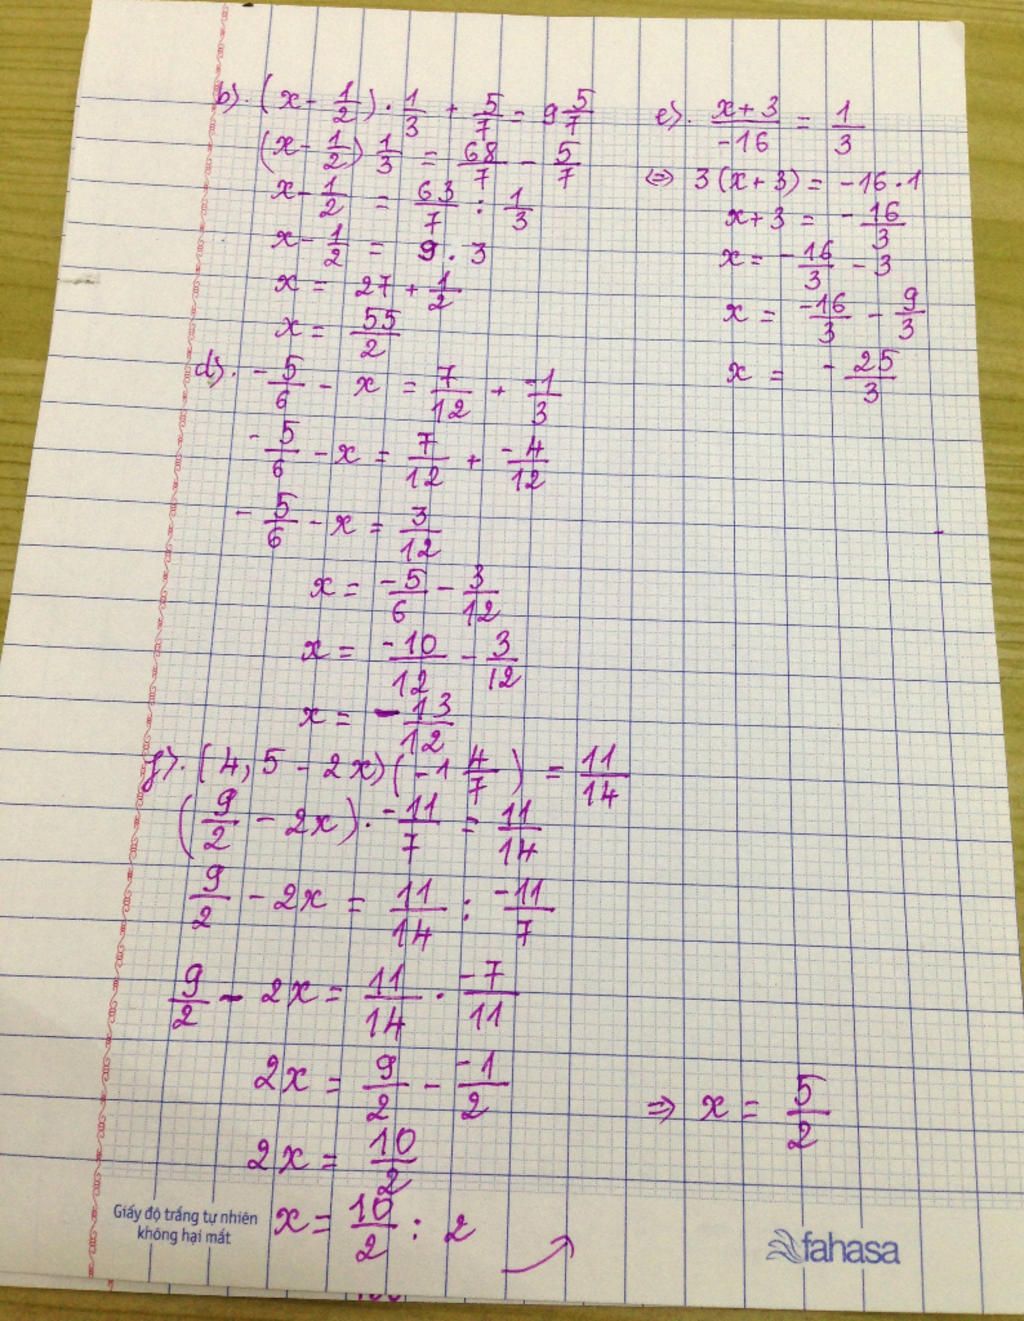 b). (x - 1/2) . 1/3 + 5/7 = 9 5/7
(x - 1/2) 1/3 = 68/7 - 5/7
x - 1/2 = 63/7 : 1/3
x - 1/2 = 9 . 3
x = 27 + 1/2
x = 55/2
d). - 5/6 - x = 7/12 + -1/3
- 5/6 - x = 7/12 + -4/12
- 5/6 - x = 3/12
x = -5/6 - 3/12
x = -10/12 - 3/12
x = - 13/12
g). (4,5 - 2x) (-1 4/7) = 11/14
(9/2 - 2x) . -11/7 = 11/14
9/2 - 2x = 11/14 : -11/7
9/2 - 2x = 11/14 . -7/11
2x = 9/2 - -1/2
2x = 10/2
x = 10/2 : 2
e). x+3/-16 = 1/3
⇔ 3(x+3) = -16.1
x+3 = - 16/3
x = - 16/3 - 3
x = -16/3 - 9/3
x = - 25/3
⇒ x = 5/2
Giấy độ trắng tự nhiên
không hại mắt
fahasa